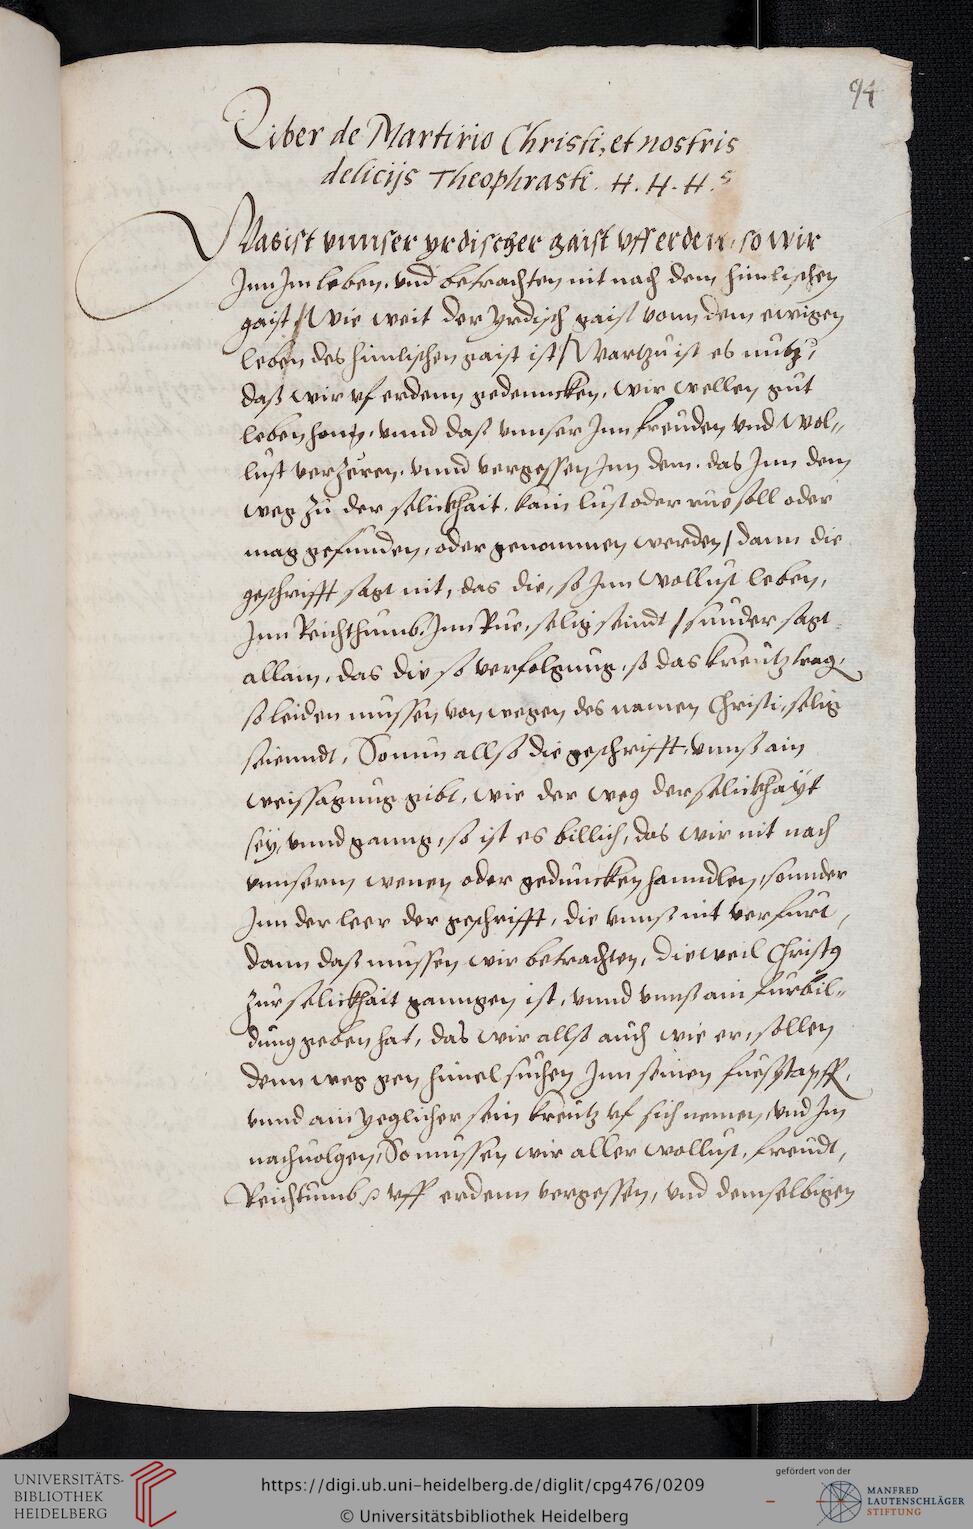 94
Liber de Martirio Christi, et nostris
delicijs Theophrasti. H. H. H.s
Was ist vnnser yrdischer gaist vff erden, so wir
Jnn Jm leben. vnd betrachten nit nach dem himlischen
gaist / Wie weit der yrdisch gaist vonn dem ewigen
leben des himlischen gaist ist / Wartzu ist es nutz,
daß wir vf erdenn gedenncken, wir wellen gut
leben hon, vnnd daß vnnser Jnn freuden vnd Wol„
lust verzeren. vnnd vergessen Jnn dem. das Jnn dem
weg zu der selickhait. kain lust oder rue soll oder
mag gefunden, oder genommen werden / dann die
geschrifft sagt nit, das die, so Jnn wollust leben,
Jnn Reichthumb, Jnn Rue, selig seindt / sunder sagt
allain, das die so verfolgung, so das kreutz trag,
so leiden mussen von wegen des namen Christi, selig
seienndt, So nun allso die geschrifft, vnnß ain
weissagung gibt, wie der weg der selickhayt
sey, vnnd ganng, so ist es billich, das wir nit nach
vnnserm wenen oder geduncken hanndlen, sonnder
Jnn der leer der geschrifft, die vnnß nit verfurt,
dann daß mussen wir betrachten, dieweil Christ9
zur selickhait ganngen ist, vnnd vnnß ain furbil„
dung geben hat, das wir allso auch wie er, sollen
denn weg gen himel suchen Jnn seinen fuesstapff,
vnnd ain yeglicher sein kreutz vf sich nemen, vnd Jm
nachuolgen, So mussen wir aller wollust, freudt,
Reichtumb vff erdenn vergessen, vnd demselbigen
UNIVERSITÄTS-
BIBLIOTHEK
HEIDELBERG
https://digi.ub.uni-heidelberg.de/diglit/cpg476/0209
© Universitätsbibliothek Heidelberg
gefördert von der
MANFRED
LAUTENSCHLÄGER
STIFTUNG